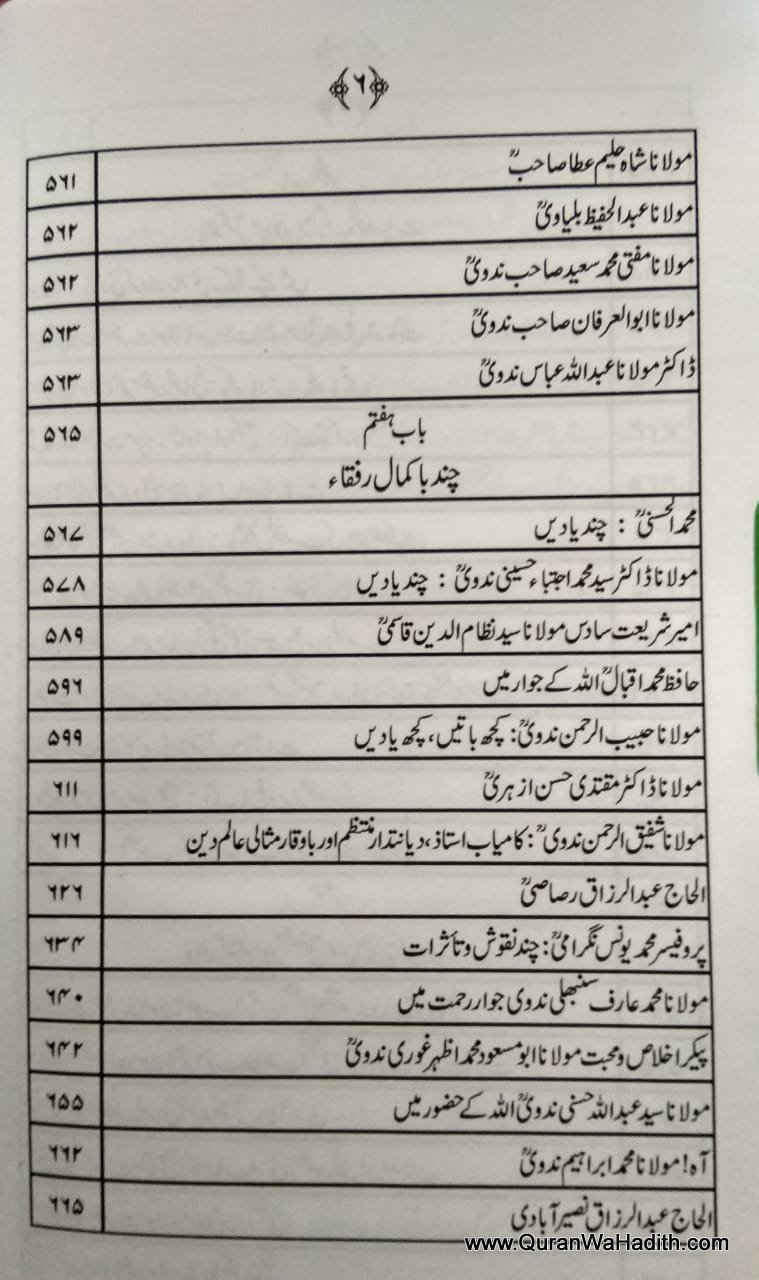 ﴿۶﴾
مولانا شاہ حلیم عطا صاحبؒ ۵۶۱
مولانا عبد الحفیظ بلیاویؒ ۵۶۲
مولانا مفتی محمد سعید صاحب ندویؒ ۵۶۲
مولانا ابوالعرفان صاحب ندویؒ ۵۶۳
ڈاکٹر مولانا عبد اللہ عباس ندویؒ ۵۶۳
باب ہفتم ۵۶۵
چند باکمال رفقاء
محمد الحسنیؒ : چند یادیں ۵۶۷
مولانا ڈاکٹر سید محمد اجتباء حسینی ندویؒ : چند یادیں ۵۷۸
امیر شریعت سادس مولانا سید نظام الدین قاسمیؒ ۵۸۹
حافظ محمد اقبالؒ اللہ کے جوار میں ۵۹۶
مولانا حبیب الرحمن ندویؒ: کچھ باتیں، کچھ یادیں ۵۹۹
مولانا ڈاکٹر مقتدی حسن ازہریؒ ۶۱۱
مولانا شفیق الرحمن ندویؒ: کامیاب استاذ، دیانتدار منتظم اور باوقار مثالی عالم دین ۶۱۶
الحاج عبد الرزاق رصاصیؒ ۶۲۶
پروفیسر محمد یونس نگرامیؒ: چند نقوش و تأثرات ۶۳۴
مولانا محمد عارف سنبھلی ندوی جوار رحمت میں ۶۴۰
پیکر اخلاص و محبت مولانا ابو مسعود محمد اظہر غوری ندویؒ ۶۴۲
مولانا سید عبد اللہ حسنی ندویؒ اللہ کے حضور میں ۶۵۵
آہ! مولانا محمد ابراہیم ندویؒ ۶۶۲
الحاج عبد الرزاق نصیرآبادی ۶۶۵
www.QuranWaHadith.com